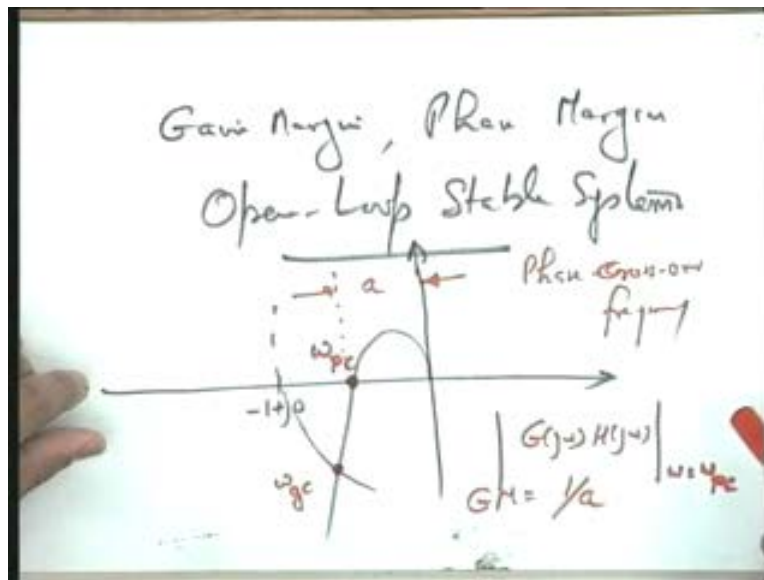 Gain Margin, Phase Margin
Open-Loop Stable Systems
a
Phase Cross-over
frequency
ωpc
-1+j0
ωgc
|G(jω)H(jω)|ω=ωpc
GM = 1/a